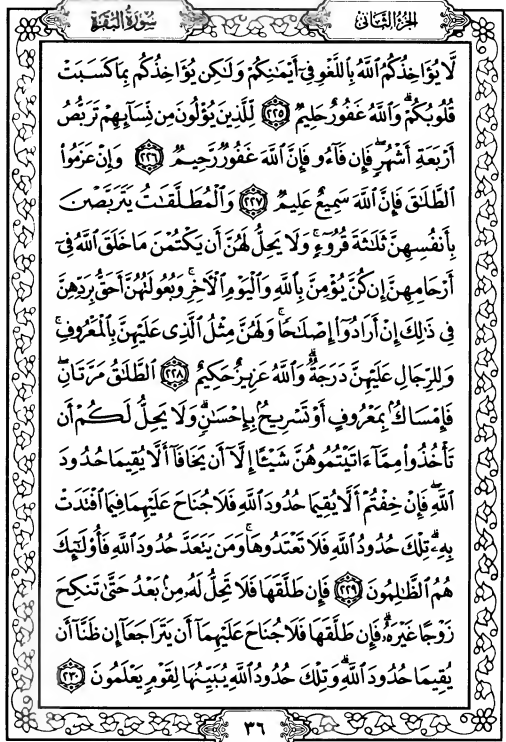 سورة البقرة
الجزء الثاني
لَّا يُؤَاخِذُكُمُ ٱللَّهُ بِٱللَّغْوِ فِىٓ أَيْمَـٰنِكُمْ وَلَـٰكِن يُؤَاخِذُكُم بِمَا كَسَبَتْ
قُلُوبُكُمْ ۗ وَٱللَّهُ غَفُورٌ حَلِيمٌ ٢٢٥ لِّلَّذِينَ يُؤْلُونَ مِن نِّسَآئِهِمْ تَرَبُّصُ
أَرْبَعَةِ أَشْهُرٍ ۖ فَإِن فَآءُو فَإِنَّ ٱللَّهَ غَفُورٌ رَّحِيمٌ ٢٢٦ وَإِنْ عَزَمُوا۟
ٱلطَّلَـٰقَ فَإِنَّ ٱللَّهَ سَمِيعٌ عَلِيمٌ ٢٢٧ وَٱلْمُطَلَّقَـٰتُ يَتَرَبَّصْنَ
بِأَنفُسِهِنَّ ثَلَـٰثَةَ قُرُوٓءٍ ۚ وَلَا يَحِلُّ لَهُنَّ أَن يَكْتُمْنَ مَا خَلَقَ ٱللَّهُ فِىٓ
أَرْحَامِهِنَّ إِن كُنَّ يُؤْمِنَّ بِٱللَّهِ وَٱلْيَوْمِ ٱلْـَٔاخِرِ ۚ وَبُعُولَتُهُنَّ أَحَقُّ بِرَدِّهِنَّ
فِى ذَٰلِكَ إِنْ أَرَادُوٓا۟ إِصْلَـٰحًا ۚ وَلَهُنَّ مِثْلُ ٱلَّذِى عَلَيْهِنَّ بِٱلْمَعْرُوفِ ۚ
وَلِلرِّجَالِ عَلَيْهِنَّ دَرَجَةٌ ۗ وَٱللَّهُ عَزِيزٌ حَكِيمٌ ٢٢٨ ٱلطَّلَـٰقُ مَرَّتَانِ ۖ
فَإِمْسَاكٌۢ بِمَعْرُوفٍ أَوْ تَسْرِيحٌۢ بِإِحْسَـٰنٍ ۗ وَلَا يَحِلُّ لَكُمْ أَن
تَأْخُذُوا۟ مِمَّآ ءَاتَيْتُمُوهُنَّ شَيْـًٔا إِلَّآ أَن يَخَافَآ أَلَّا يُقِيمَا حُدُودَ
ٱللَّهِ ۖ فَإِنْ خِفْتُمْ أَلَّا يُقِيمَا حُدُودَ ٱللَّهِ فَلَا جُنَاحَ عَلَيْهِمَا فِيمَا ٱفْتَدَتْ
بِهِۦ ۗ تِلْكَ حُدُودُ ٱللَّهِ فَلَا تَعْتَدُوهَا ۚ وَمَن يَتَعَدَّ حُدُودَ ٱللَّهِ فَأُو۟لَـٰٓئِكَ
هُمُ ٱلظَّـٰلِمُونَ ٢٢٩ فَإِن طَلَّقَهَا فَلَا تَحِلُّ لَهُۥ مِنۢ بَعْدُ حَتَّىٰ تَنكِحَ
زَوْجًا غَيْرَهُۥ ۗ فَإِن طَلَّقَهَا فَلَا جُنَاحَ عَلَيْهِمَآ أَن يَتَرَاجَعَآ إِن ظَنَّآ أَن
يُقِيمَا حُدُودَ ٱللَّهِ ۗ وَتِلْكَ حُدُودُ ٱللَّهِ يُبَيِّنُهَا لِقَوْمٍ يَعْلَمُونَ ٢٣٠
٣٦